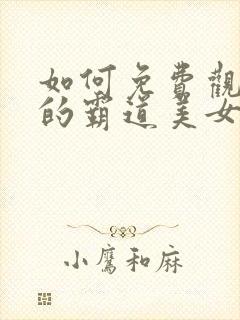 如何免費觀
的霸道美女
小鷹和麻